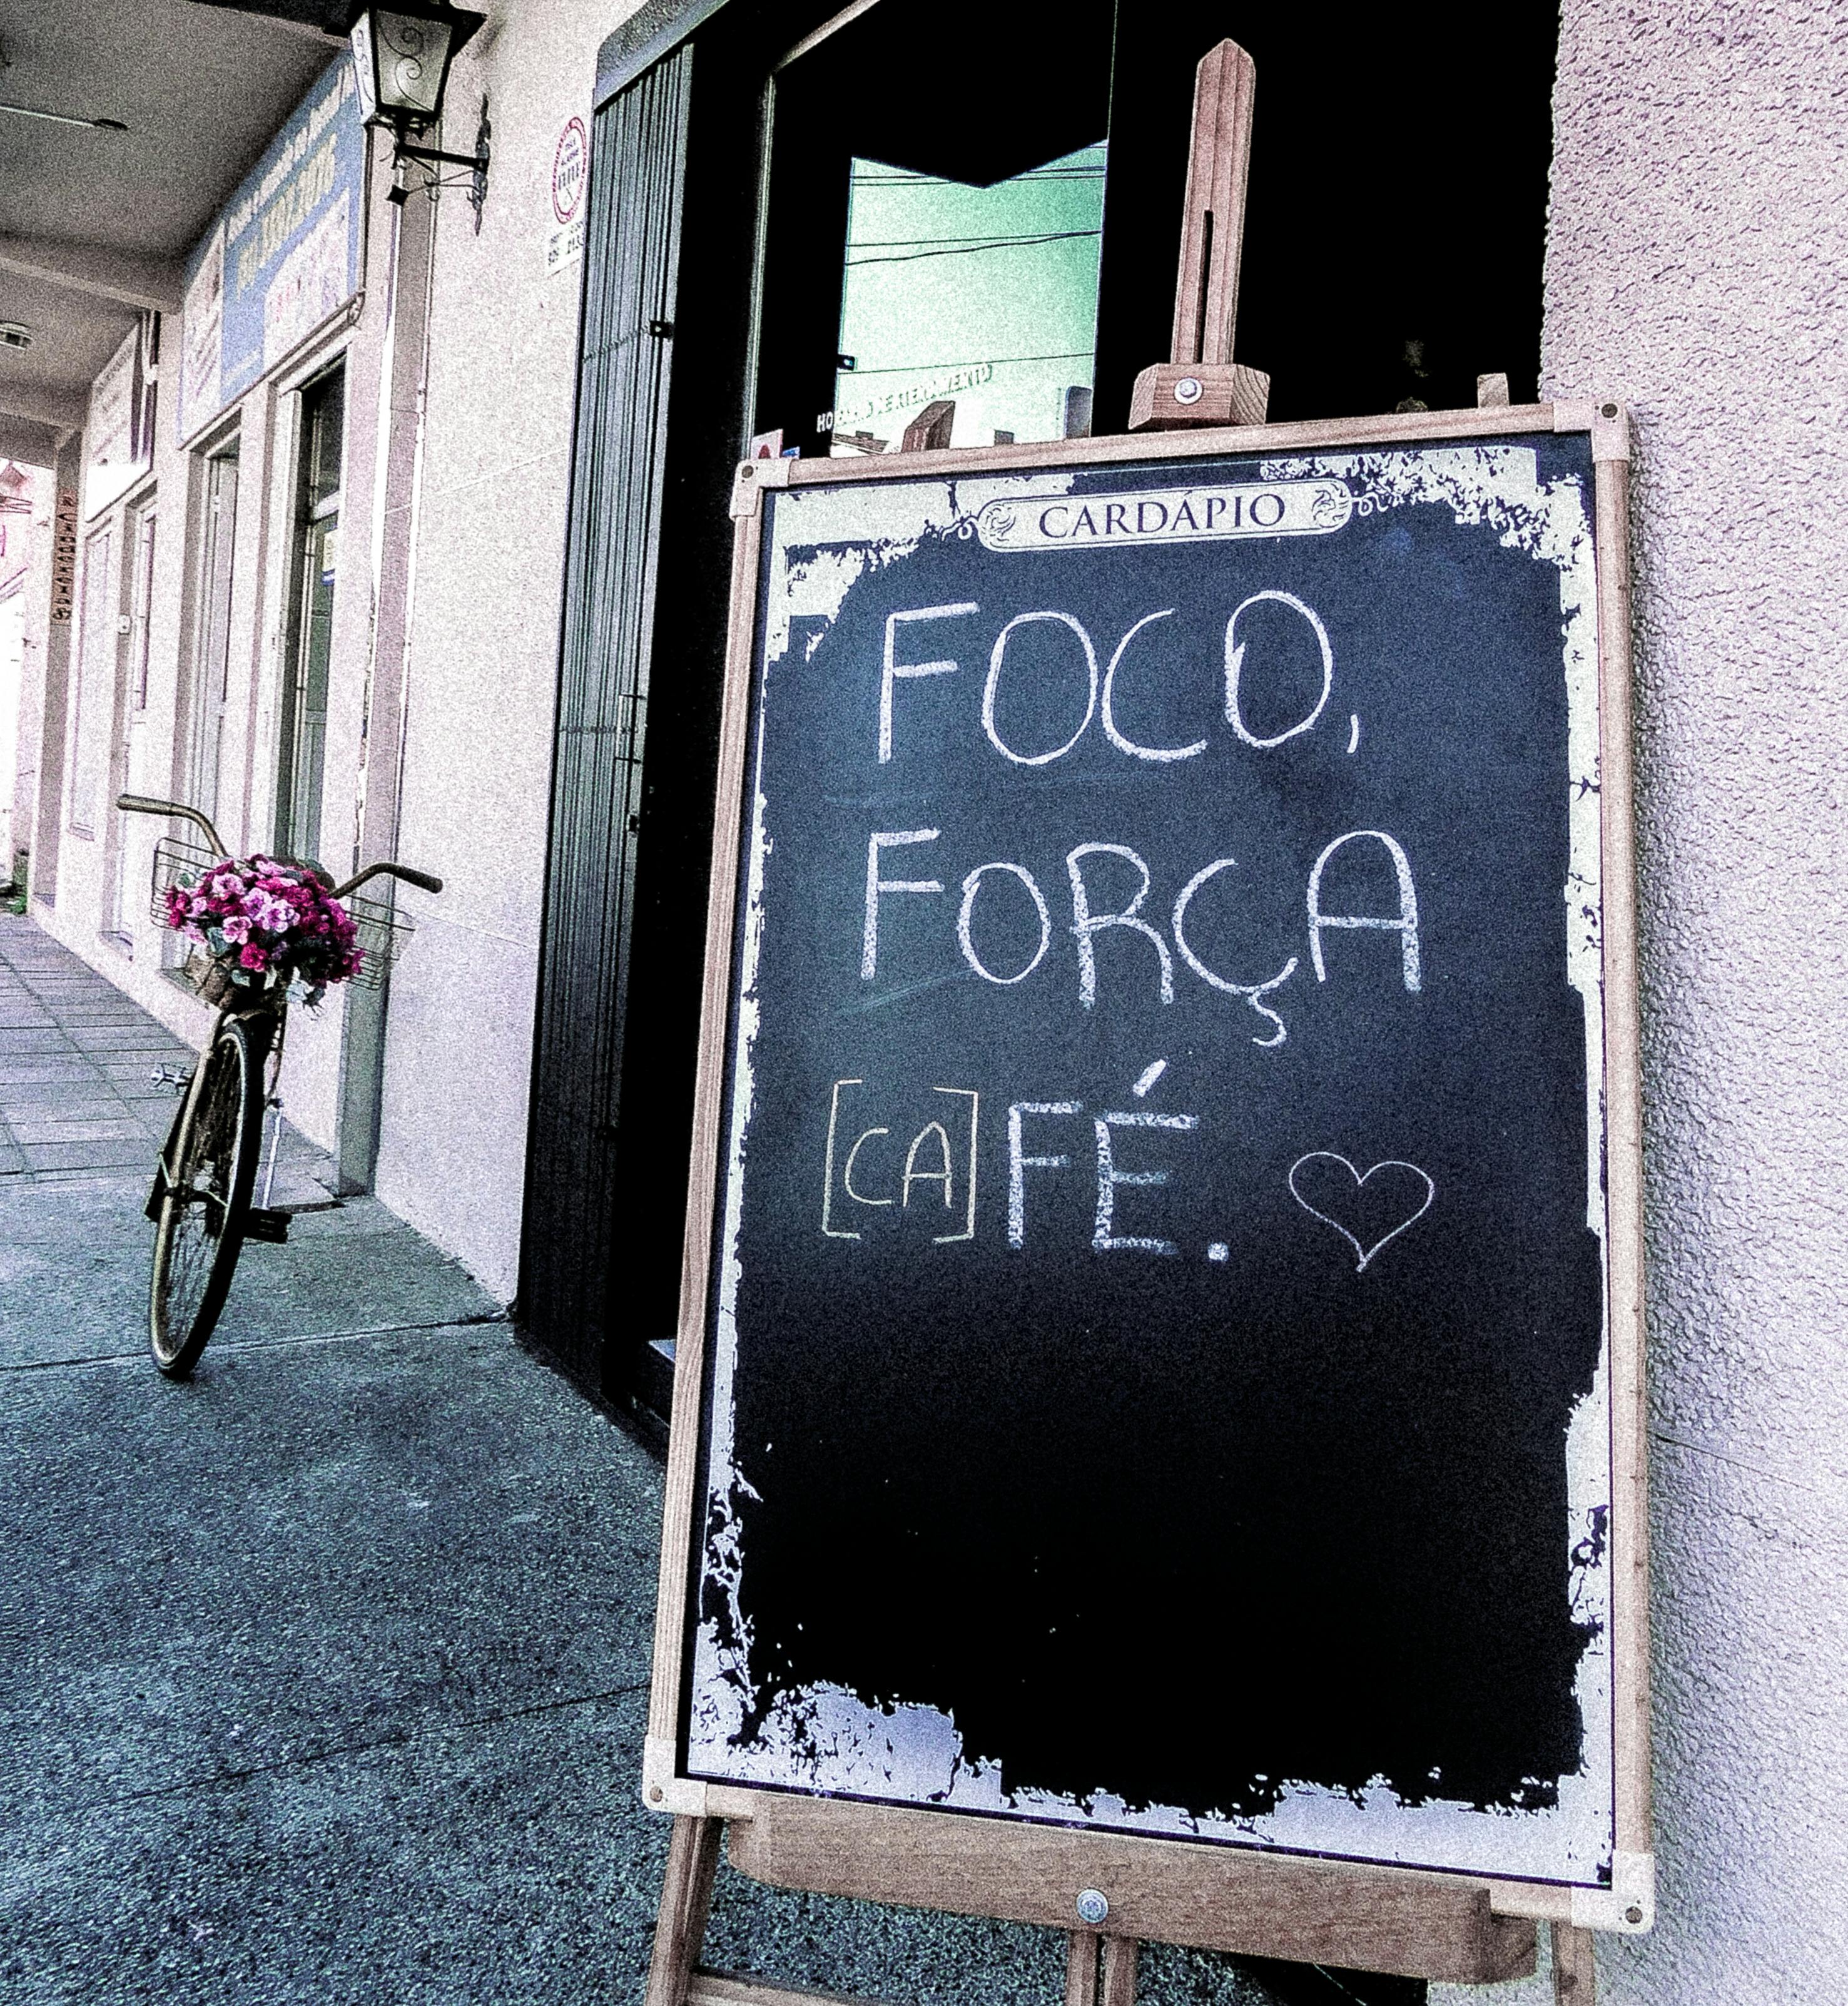 HORÁRIO DE ATENDIMENTO
CARDÁPIO
FOCO,
FORÇA
[CA]FÉ.